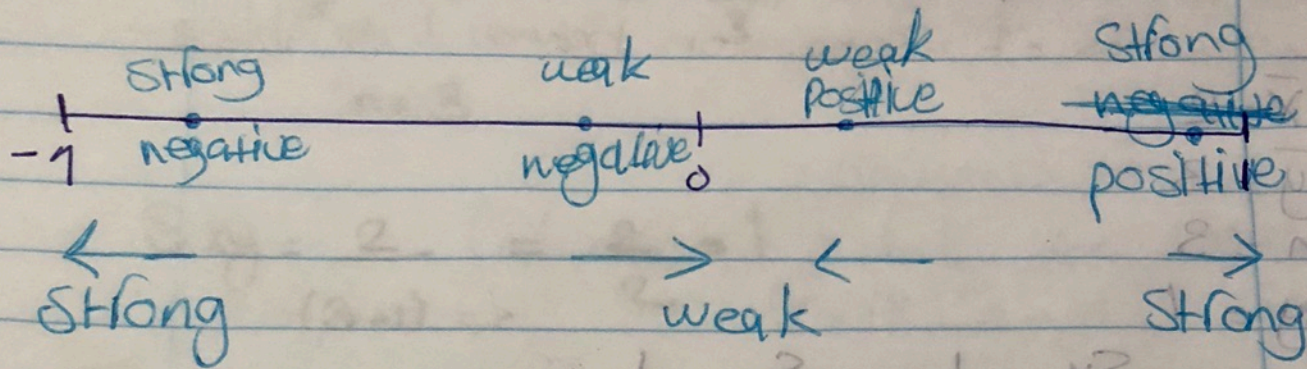 strong weak weak strong
positive negative
-1 negative negative 0 positive 1
strong weak strong